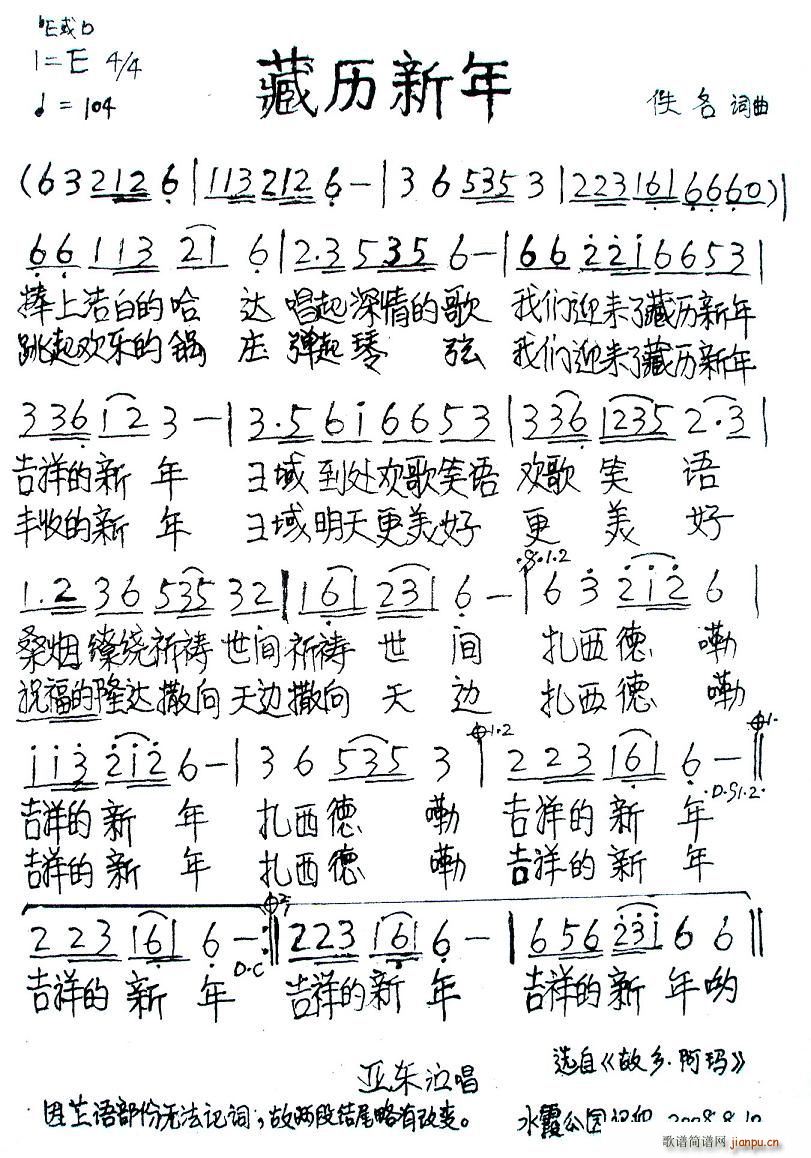 ♭E或D
1=E 4/4
♩=104
藏历新年
佚名 词曲
(6 3 2 1 2 6 | 1 1 3 2 1 2 6 - | 3 6 5 3 5 3 | 2 2 3 1 6 1 6 6 6 0) |
6 6 1 1 3 2 1 6 | 2. 3 5 3 5 6 - | 6 6 2 2 1 6 6 5 3 |
捧上洁白的哈 达 唱起深情的歌 我们迎来了藏历新年
跳起欢乐的锅 庄 弹起琴 弦 我们迎来了藏历新年
3 3 6 1 2 3 - | 3. 5 6 i 6 6 5 3 | 3 3 6 1 2 3 5 2. 3 |
吉祥的新 年 王域到处欢歌笑语 欢歌 笑 语
丰收的新 年 王域明天更美好 更 美 好
.S.1.2
1. 2 3 6 5 3 5 3 2 | 1 6 1 2 3 1 6 - | 6 3 2 i 2 6 |
桑烟缭绕祈祷世间祈祷 世 间 扎西德 嘞
祝福的隆达撒向天边撒向 天 边 扎西德 嘞
1.2
i i 3 2 i 2 6 - | 3 6 5 3 5 3 | 2 2 3 1 6 1 6 - ||
D.S1.2.
吉祥的 新 年 扎西德 嘞 吉祥的 新 年
吉祥的 新 年 扎西德 嘞 吉祥的 新 年
2 2 3 1 6 1 6 - :|| 2 2 3 1 6 1 6 - | 6 5 6 2 3 i 6 6 ||
D.C
吉祥的 新 年 吉祥的新 年 吉祥的新 年哟
选自《故乡.阿玛》
亚东演唱
因芒语部份无法记词,故两段结尾略有改变。
水霞公园 2008.8.10
歌谱简谱网
jianpu.cn